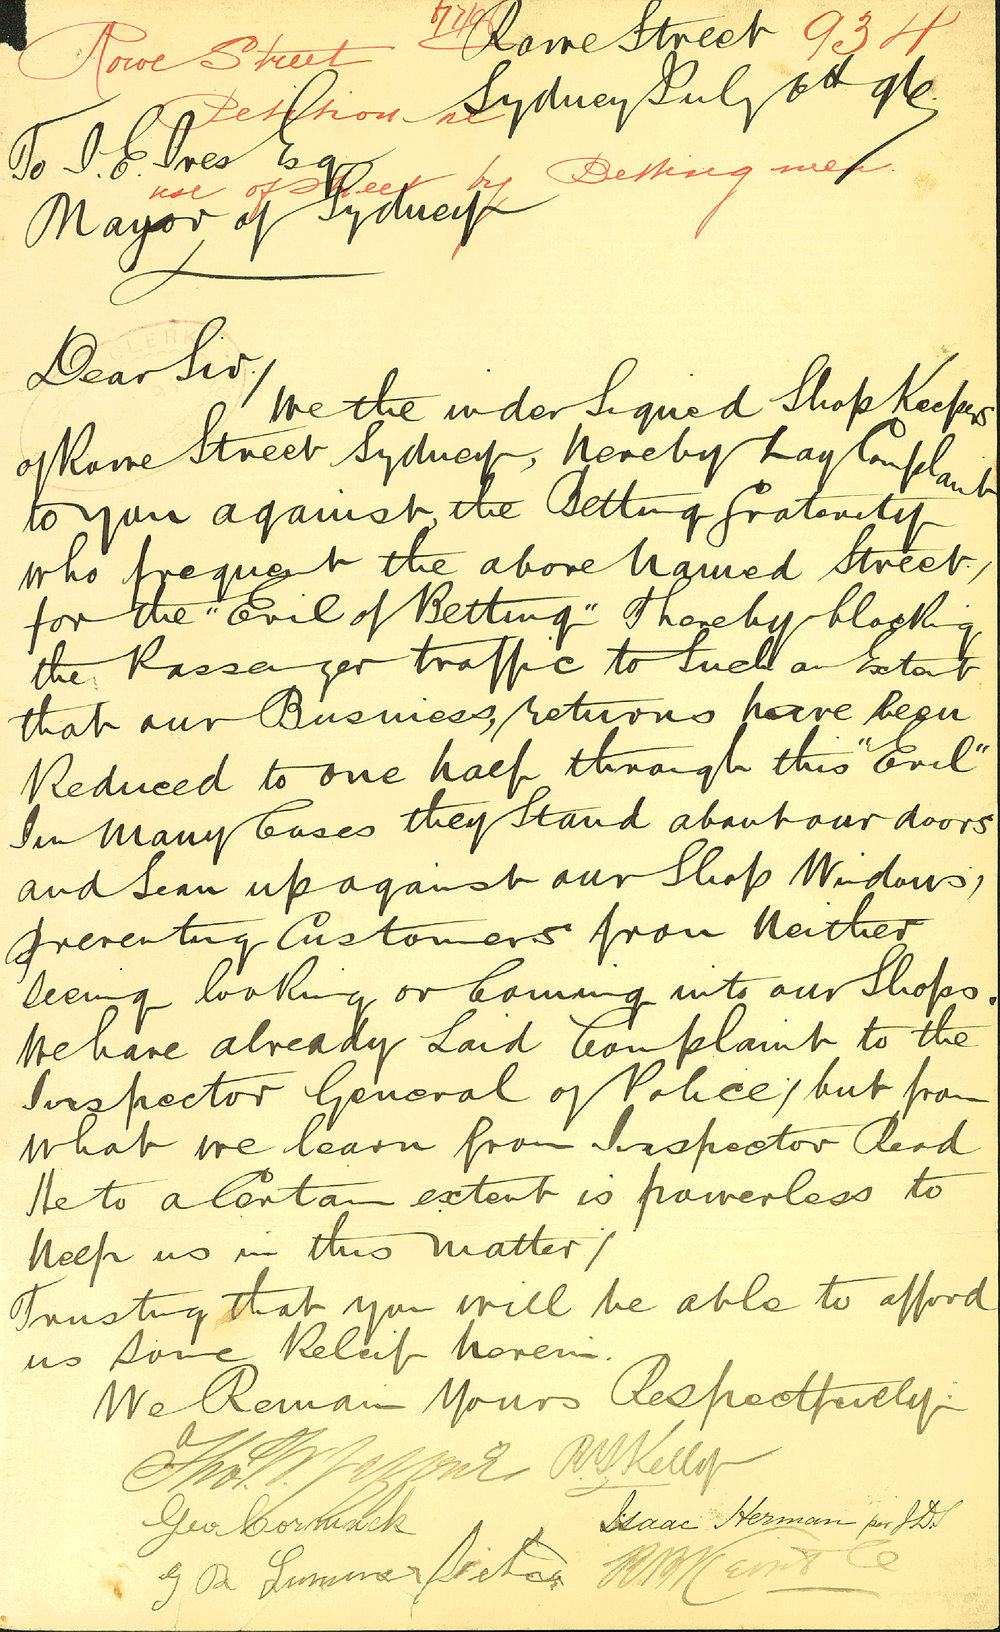 Rowe Street 934
Rowe Street
Sydney July 6th 96
Petition re
To I. E. Ives Esq
use of street by Betting men.
Mayor of Sydney
CLERK
Dear Sir,/
We the undersigned Shop Keepers
of Rowe Street Sydney, hereby Lay Complaint
to you against, the Betting fraternity
who frequent the above named Street,
for the "Evil of Betting" Thereby blocking
the Passenger traffic to Such an Extent
that our Business, returns have been
Reduced to one half through this "Evil"
In Many Cases they Stand about our doors
and Lean up against our Shop Windows,
preventing Customers from Neither
seeing looking or Coming into our Shops.
We have already Laid Complaint to the
Inspector General of Police, but from
what we learn from Inspector Read
He to a Certain extent is powerless to
help us in this matter,
Trusting that you will be able to afford
us some Releif herein.
We Remain Yours Respectfully.
Thos. Kelly
Geo Cormack Isaac Herman per J.D.S
G R Co